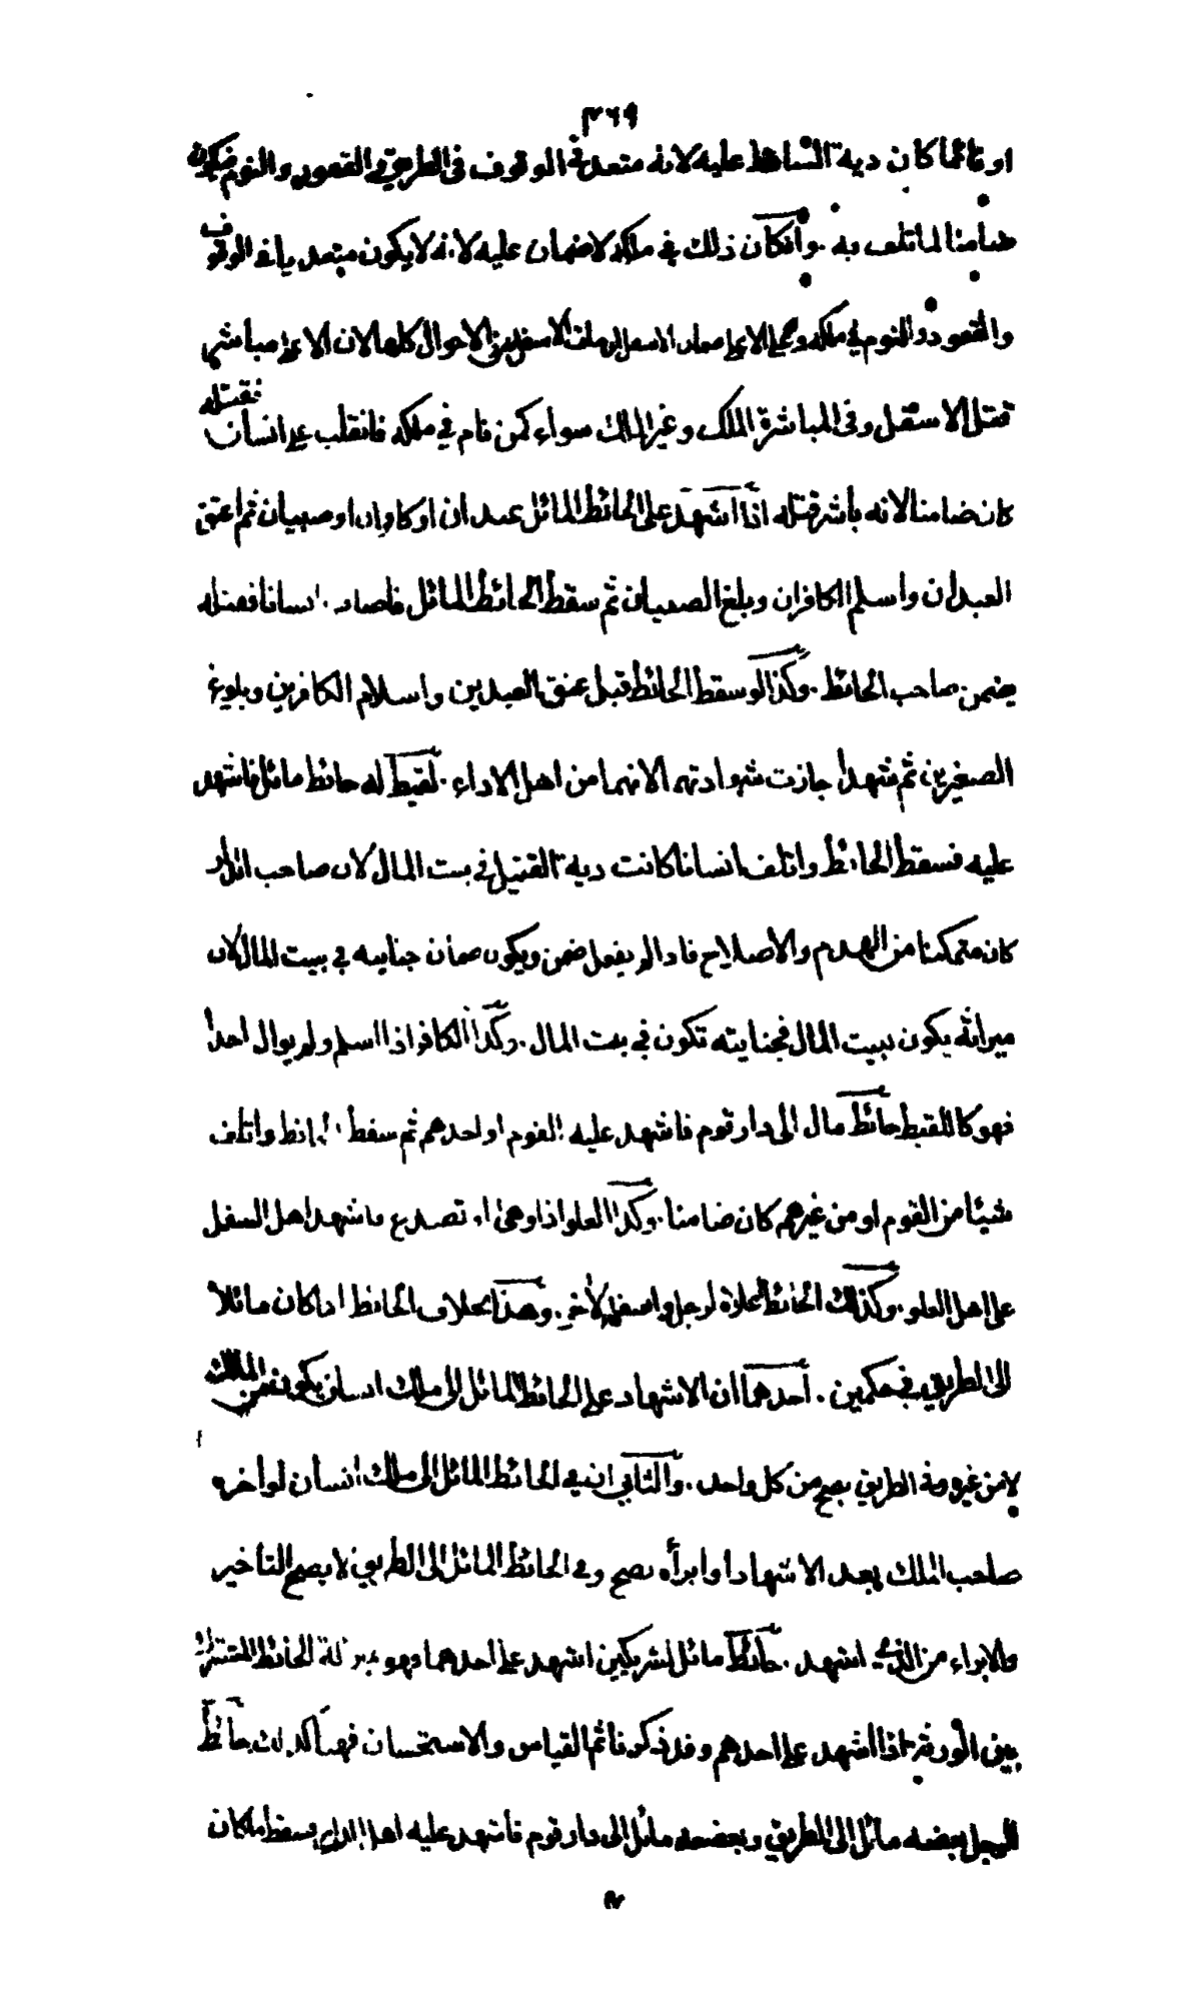 ٣٦٩
او قائما كان دية الساقط عليه لانه متعد في الوقوف في الطريق والقعود والنوم فيكون
ضامنا لما تلف به . وان كان ذلك في ملكه لا ضمان عليه لانه لا يكون متعديا في الوقوف
والقعود والنوم في ملكه وعلى الاعلى ضمان الاسفل في الاحوال كلها لان الاعلى مباشر
قتل الاسفل وفي المباشرة الملك وغير الملك سواء كمن نام في ملكه فانقلب على انسان فقتله
كان ضامنا لانه باشر قتله اذا اشهد على الحائط المائل عبدان او كافران او صبيان ثم اعتق
العبدان واسلم الكافران وبلغ الصبيان ثم سقط الحائط المائل فاصاب انسانا فقتله
يضمن صاحب الحائط . وكذا لو سقط الحائط قبل عتق العبدين واسلام الكافرين وبلوغ
الصغيرين ثم شهدا جازت شهادتهما لانهما من اهل الاداء . لقيط له حائط مائل فاشهد
عليه فسقط الحائط واتلف انسانا كانت دية القتيل في بيت المال لان صاحب الدار
كان متمكنا من الهدم والاصلاح فاذا لم يفعل ضمن ويكون ضمان جنايته في بيت المال لان
ميراثه يكون لبيت المال فجنايته تكون في بيت المال . وكذا الكافر اذا اسلم ولم يوال احدا
فهو كاللقيط حائط مال الى دار قوم فاشهد عليه القوم او احدهم ثم سقط الحائط واتلف
شيئا من القوم او من غيرهم كان ضامنا . وكذا العلو اذا وهى او تصدع فاشهد اهل السفل
على اهل العلو . وكذلك الحائط اعلاه لرجل واسفله لآخر . وهذا بخلاف الحائط اذا كان مائلا
الى الطريق في حكمين . احدهما ان الاشهاد على الحائط المائل الى ملك انسان يكون من المالك
لا من غيره وفي الطريق يصح من كل واحد . والثاني ان في الحائط المائل الى ملك انسان لو اخره
صاحب الملك بعد الاشهاد او ابرأه يصح وفي الحائط المائل الى الطريق لا يصح التأخير
والابراء من الذي اشهد . حائط مائل لشريكين اشهد على احدهما فهو بمنزلة الحائط المشترك
بين الورثة اذا اشهد على احدهم وقد ذكرنا ثم القياس والاستحسان فهنا كذلك حائط
لرجل بعضه مائل الى الطريق وبعضه مائل الى دار قوم فاشهد عليه اهل الدار فسقط ما كان